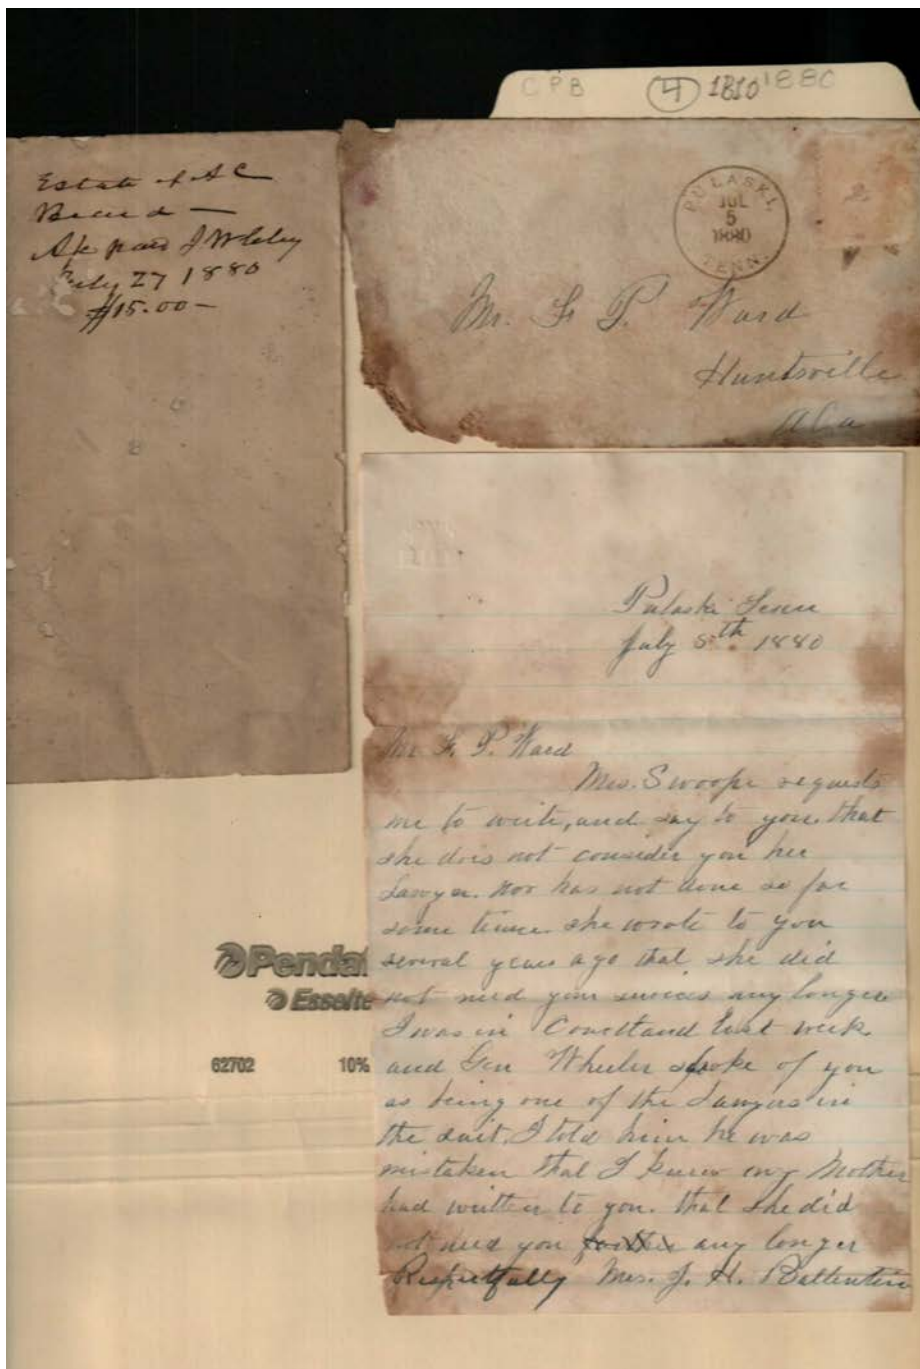 CPB 4 1810 1880
Estate of A C
Beard —
paid J W
July 27 1880
$15.00 —
PULASKI,
JUL
5
1880
TENN.
2
Mr. F P. Ward
Huntsville
Ala
Pulaski Tenn
July 5th 1880
Mr F. P. Ward
Mrs. Swoope requests
me to write, and say to you. that
she does not consider you her
Lawyer. nor has not done so for
some time. she wrote to you
several years ago that she did
not need your services any longer
I was in Courtland last week
and Gen Wheeler spoke of you
as being one of the Lawyers in
the suit. I told him he was
mistaken that I knew my Mother
had written to you. that she did
not need you any longer
Respectfully Mrs. J. H. Ballentine
Pendaf
Esselte
62702 10%